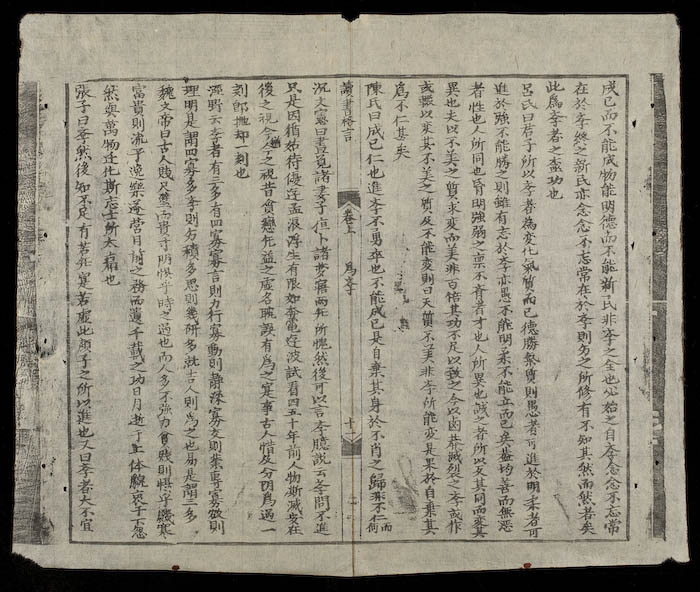 成已而不能成物能明德而不能新民非斈之全也必始之自斈念念不忘常
在於斈終之新民亦念念不忘常在於斈則之所修有不知其然而然者矣
此為斈者之盡功也
吕氏曰君子所以斈者為変化氣質而已德勝氣質則愚者可進於明柔者可
進於強不能勝之則雖有志於斈亦愚不能明柔不能立而已矣盖均善而無惡
者性也人所同也昏明強弱之禀不齊者才也人所異也誠之者所以反其同而変其
異也夫以不美之質求変而美非百倍其功不足以致之今以卤莾滅裂之斈或作
或輟以変其不美之質及不能変則曰天質不美非斈所能変是果於自棄其
為不仁甚矣
陳氏曰成已仁也進斈不勇卒也不能成已是自棄其身於不肖之歸非不仁而何
讀書格言 卷上 為斈
文曰晝諸妻子夜卜諸夢寐兩无所愧然後可以言斈臆説云斈問不進
只是因循姑待優逰浪浮生有限如奔電逰波試看四五十年前人物斯滅安在
後之視今猶今之視昔貪戀无益之虛名耽誤有為之寔事古人惜及分阴為過一
刻即拋却一刻也
涇野云斈者有三多有四寡寡言則力行寡動則静深寡交則業專寡欲則
理明是謂四寡多斈則多積多思則幾研多就古人則為之也易是謂三多
魏文帝曰古人賤尺璧而貴寸阴惧乎時之過也而人多不強力貧賤則惧乎饑寒
富貴則流于逸樂遂營目前之務而遺千載之功日月逝于上体貌衰于下忽
然與萬物迁化斯志士所大痛也
張子曰斈然後知不足有若无寔若虛此顔子之所以進也人曰斈者大不宜